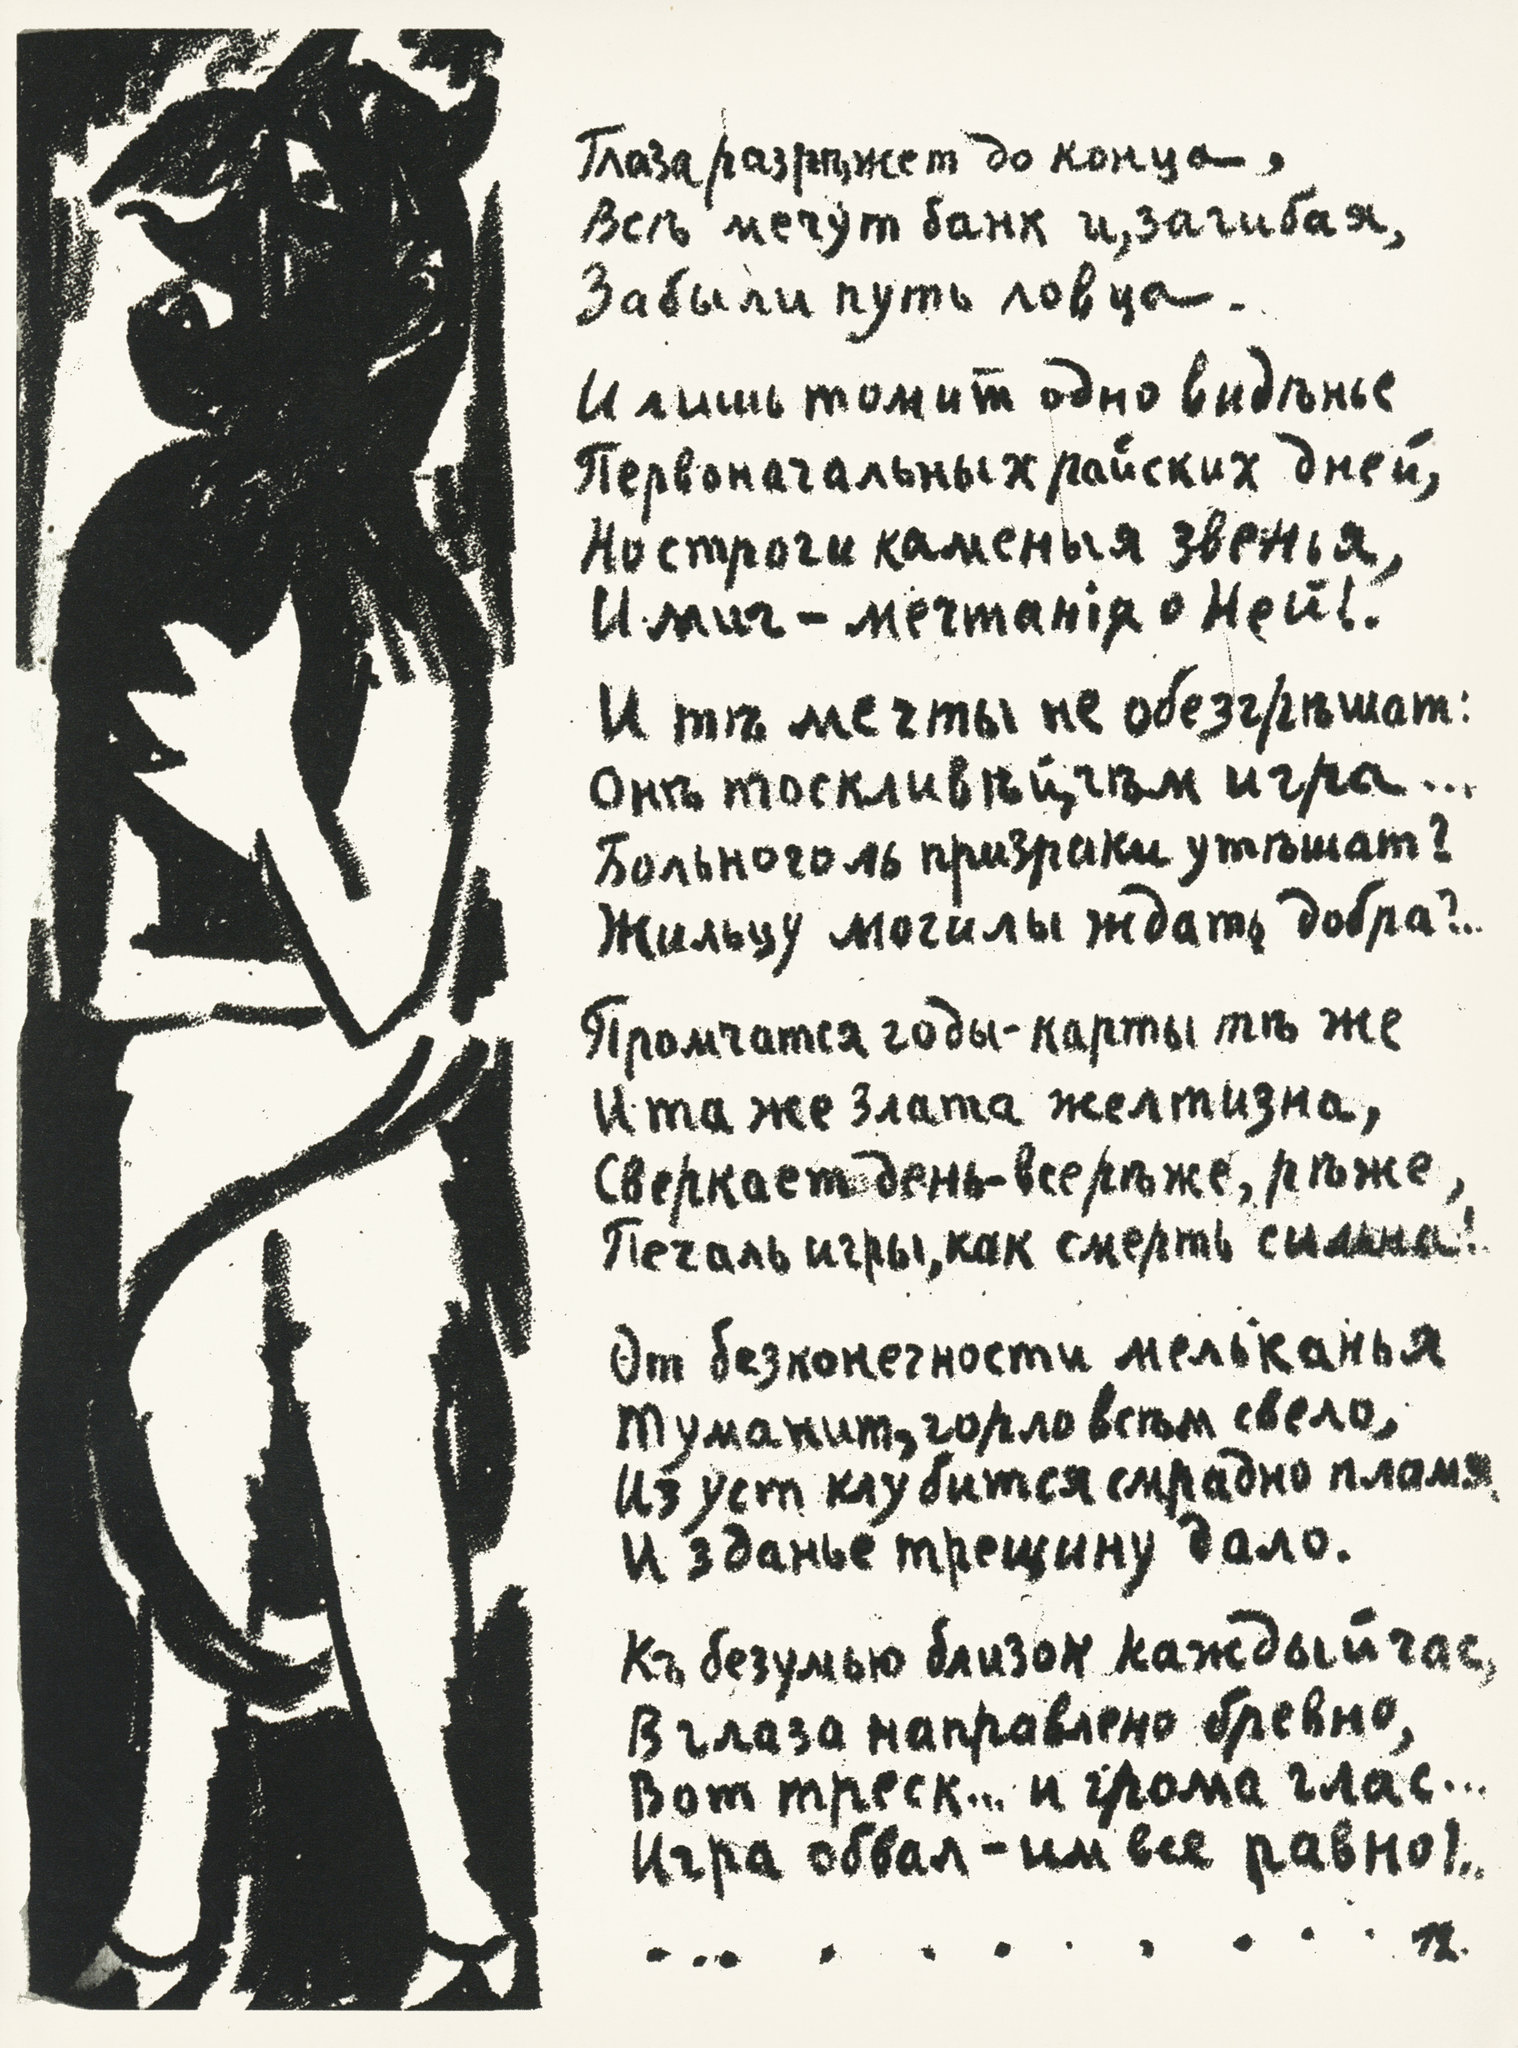 Глаза разрѣжет до конца,
Всѣ мечут банк и, загибая,
Забыли путь ловца.
И лишь томит одно видѣнье
Первоначальных райских дней,
Но строги каменыя звенья,
И миг – мечтанія о Ней!.
И тѣ мечты не обезгрѣшат:
Онѣ тоскливѣй, чѣм игра...
Больного ль призраки утѣшат?
Жильцу могилы ждать добра?..
Промчатся годы – карты тѣ же
И та же злата желтизна,
Сверкает день – все рѣже, рѣже,
Печаль игры, как смерть сильна!
От безконечности мельканья
Туманит, горло всѣм свело,
Из уст клубится смрадно пламя
И зданье трещину дало.
Къ безумью близок каждый час,
В глаза направлено бревно,
Вот треск... и грома глас...
Игра обвал – им все равно!..
. . . . . . . . . . . . 12.